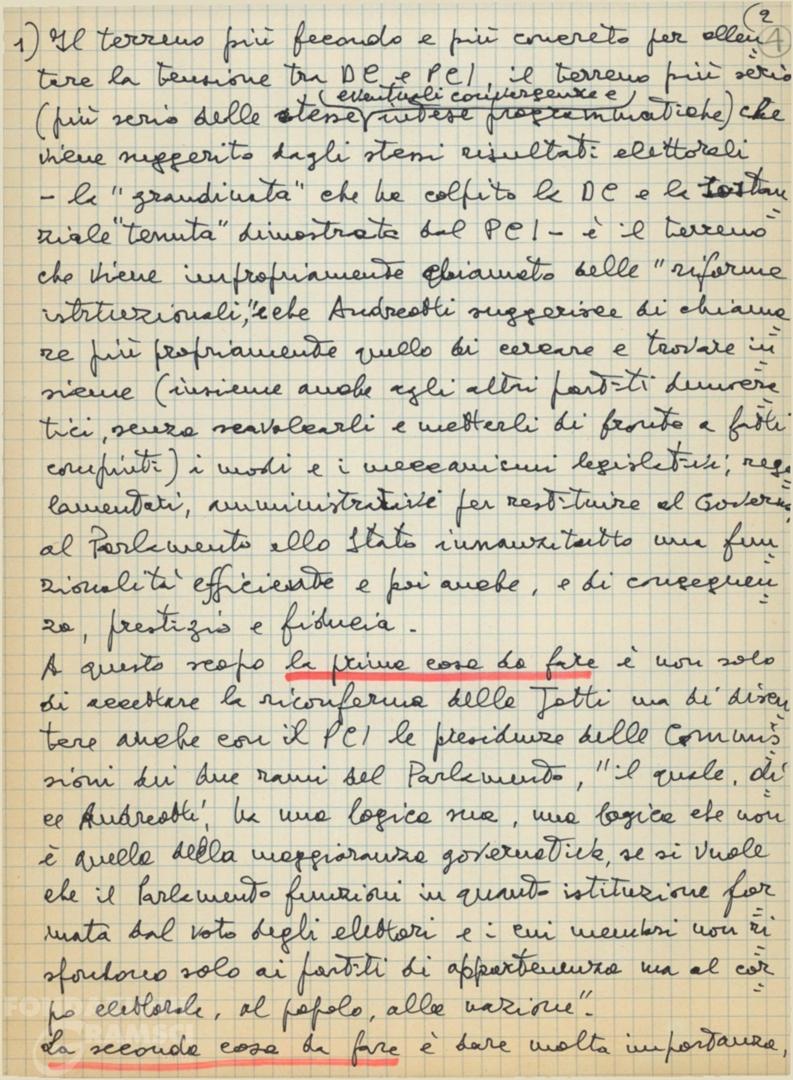 2
4
1) Il terreno più fecondo e più concreto per allen
tare la tensione tra DC e PCI, il terreno più serio
eventuali convergenze e
(più serio delle stesse intese programmatiche) che
viene suggerito dagli stessi risultati elettorali
- la "grandinata" che ha colpito la DC e la sostan
ziale "tenuta" dimostrata dal PCI - è il terreno
che viene impropriamente chiamato delle "riforme
istituzionali," e che Andreotti suggerisce di chiama
re più propriamente quello di cercare e trovare in
sieme (insieme anche agli altri partiti democra
tici, senza scavalcarli e metterli di fronte a fatti
compiuti) i modi e i meccanismi legislativi, rego
lamentari, amministrativi per restituire al Governo,
al Parlamento allo Stato innanzitutto una fun
zionalità efficiente e poi anche, e di conseguen
za, prestigio e fiducia.
A questo scopo la prima cosa da fare è non solo
di accettare la riconferma della Jotti ma di discu
tere anche con il PCI le presidenze delle Commis
sioni dei due rami del Parlamento, "il quale, di
ce Andreotti, ha una logica sua, una logica che non
è quella della maggioranza governativa, se si vuole
che il Parlamento funzioni in quanto istituzione for
mata dal voto degli elettori e i cui membri non ri
spondono solo ai partiti di appartenenza ma al cor
po elettorale, al popolo, alla nazione".
La seconda cosa da fare è dare molta importanza,